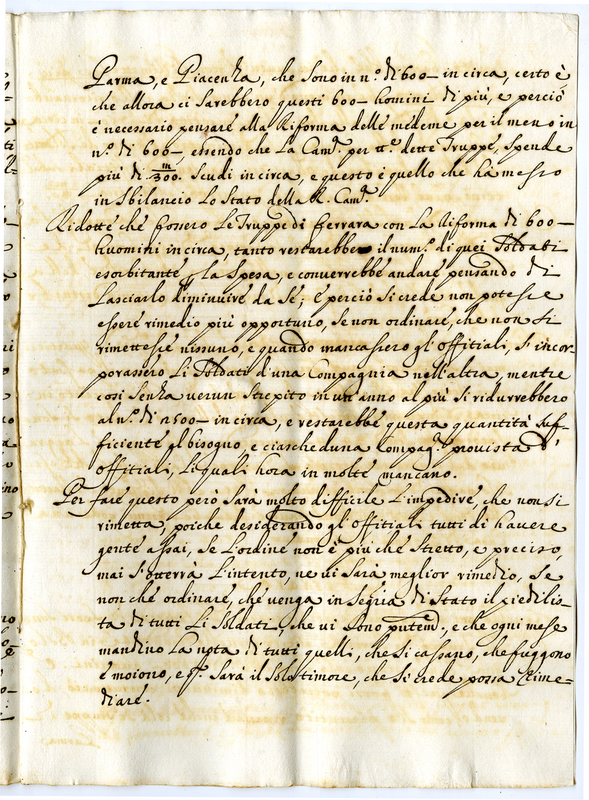 Parma, e Piacenza, che sono in n.º di 600 – in circa, certo è
che allora ci sarebbero questi 600 – homini di più, e perciò
è necessario pensare alla Riforma delle medeme per il meno in
n.º di 600 –, essendo che la Cam.ª per tt.º dette Truppe, spende
più di m/300. scudi in circa, e questo è quello che hà messo
in sbilancio lo stato della R. Cam.ª
Ridotte che fossero le Truppe di Ferrara con la Riforma di 600 –
huomini in circa, tanto restarebbe il num.º di quei soldati
esorbitante la spesa, e converrebbe andare pensando di
lasciarlo diminuire da se; E perciò si crede non potesse
essere rimedio più opportuno, se non ordinare, che non si
rimettesse nissuno, e quando mancassero gl'offitiali, si incor-
porassero li soldati d'una Compagnia nell'altra, mentre
così senza verun strepito in un'anno al più si ridurrebbero
al n.º di 2500 – in circa, e restarebbe questa quantità suf-
ficiente al bisogno, e ciascheduna Compag.ª provista d'
offitiali, li quali hora in molte mancano.
Per fare questo però sarà molto difficile l'impedire, che non si
rimetta, poiche desiderando gl'offitiali tutti di havere
gente assai, se l'ordine non è più che stretto, e preciso,
mai s'otterrà l'intento, ne vi sarà meglior rimedio, se
non che ordinare, che venga in Segria di Stato il piedilis-
ta di tutti li soldati, che vi sono, e che ogni mese
mandino la nota di tutti quelli, che si cassano, che fuggono
è moiono, e q.º sarà il solo timore, che si crede possa rime-
diare.